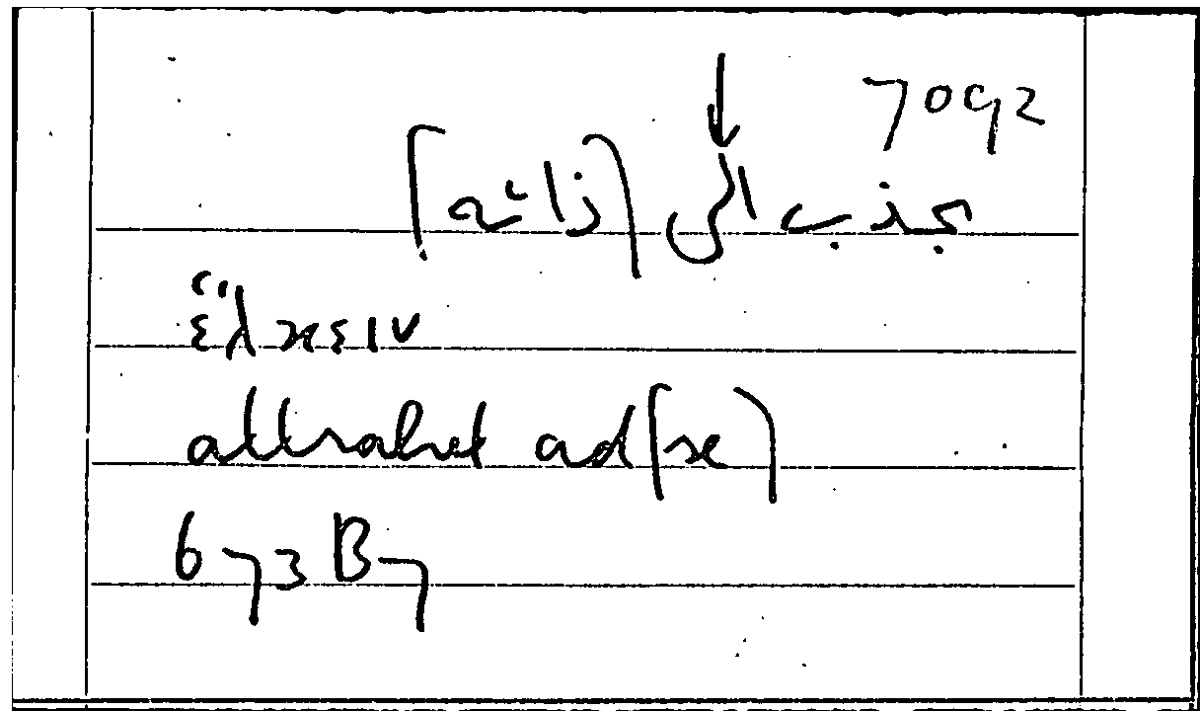 7092
يجذب الى (ذاته)
ἕλκειν
attrahet ad (se)
673 B7